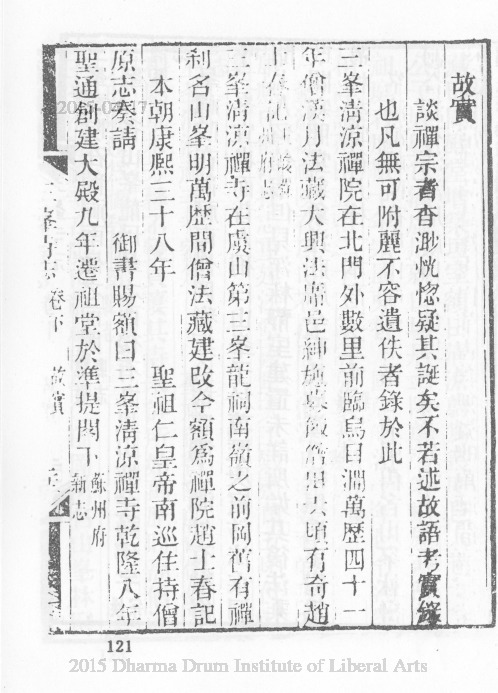 故實
談禪宗者杳渺恍惚疑其誕矣不若述故語考實錄
也凡無可附麗不容遺佚者錄於此
三峯清涼禪院在北門外數里前臨烏目澗萬歷四十一
年僧漢月法藏大興法席邑紳施 頃有奇趙
士春記
三峯清涼禪寺在虞山第三峯龍祠南嶺之前岡舊有禪
刹名山峯明萬歷間僧法藏建改今額爲禪院趙士春記
本朝康熙三十八年 聖祖仁皇帝南巡住持僧
原志奏請 御書賜額曰三峯清涼禪寺乾隆八年
聖通創建大殿九年遷祖堂於準提閣下 蘇州府新志
三峯寺志 卷下 故實
121
2015 Dharma Drum Institute of Liberal Arts